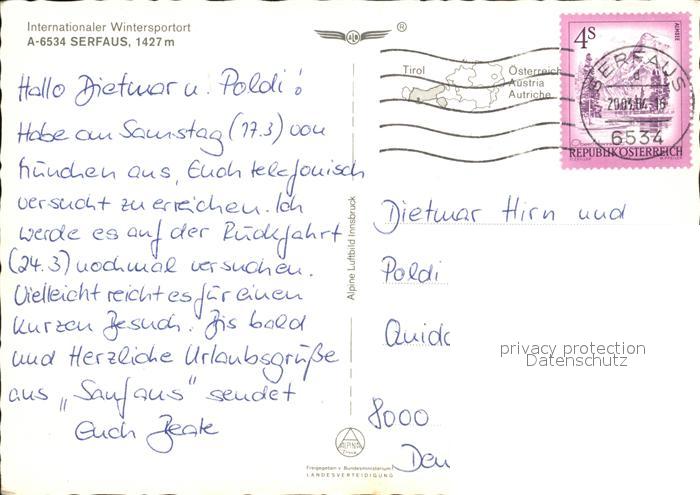 Internationaler Wintersportort
A-6534 SERFAUS, 1427 m
Hallo Dietmar u. Poldi!
Habe am Samstag (17.3) von
München aus, Euch telefonisch
versucht zu erreichen. Ich
werde es auf der Rückfahrt
(24.3) nochmal versuchen.
Vielleicht reicht es für einen
kurzen Besuch. Bis bald
und Herzliche Urlaubsgrüße
aus „Saufaus" sendet
Euch Beate
Alpine Luftbild Innsbruck
ALPINE
Freigegeben v. Bundesministerium f.
LANDESVERTEIDIGUNG
®
Tirol
Österreich
Austria
Autriche
4S
ALMSEE
REPUBLIK ÖSTERREICH
SERFAUS
6534
Dietmar Hirn und
Poldi
Quido
privacy protection
Datenschutz
8000
Den